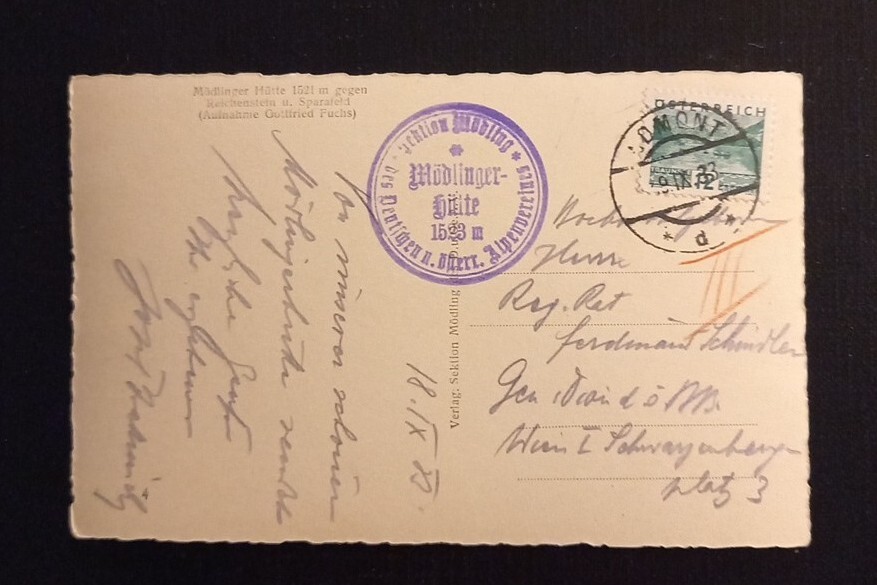 Mödlinger Hütte 1521 m gegen
Reichenstein u. Sparafeld
(Aufnahme Gottfried Fuchs)
Sektion Mödling
des Deutschen u. österr. Alpenvereines
Mödlinger-
Hütte
1523 m
ÖSTERREICH
12
ADMONT
d
Verlag: Sektion Mödling
18. IX 33
Von unserer schönen
Mödlingerhütte sendet
herzliche Grüße
Ihr ergebener
Josef
Herrn
Reg. Rat
Ferdinand Schindler
Gen. Dion d ö BB.
Wien I Schwarzenberg
platz 3